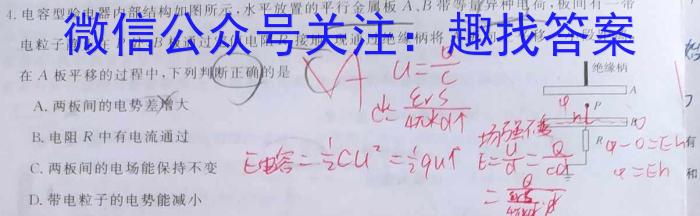 4. 电容型验电器内部结构如图所示,水平放置的平行金属板 A、B 带等量异种电荷,板间有一带
电粒子
微信公众号关注:趣找答案
在 A 板平移的过程中,下列判断正确的是
A. 两板间的电势差增大
B. 电阻 R 中有电流通过
C. 两板间的电场能保持不变
D. 带电粒子的电势能减小
绝缘柄
A
P
B
R
U=Q/C
C=εrS/4πkd↑
E电容=½CU²=½qU↑
场强不变
E=U/d=Q/Cd
φ-0=Eh
φ=Eh
有
和